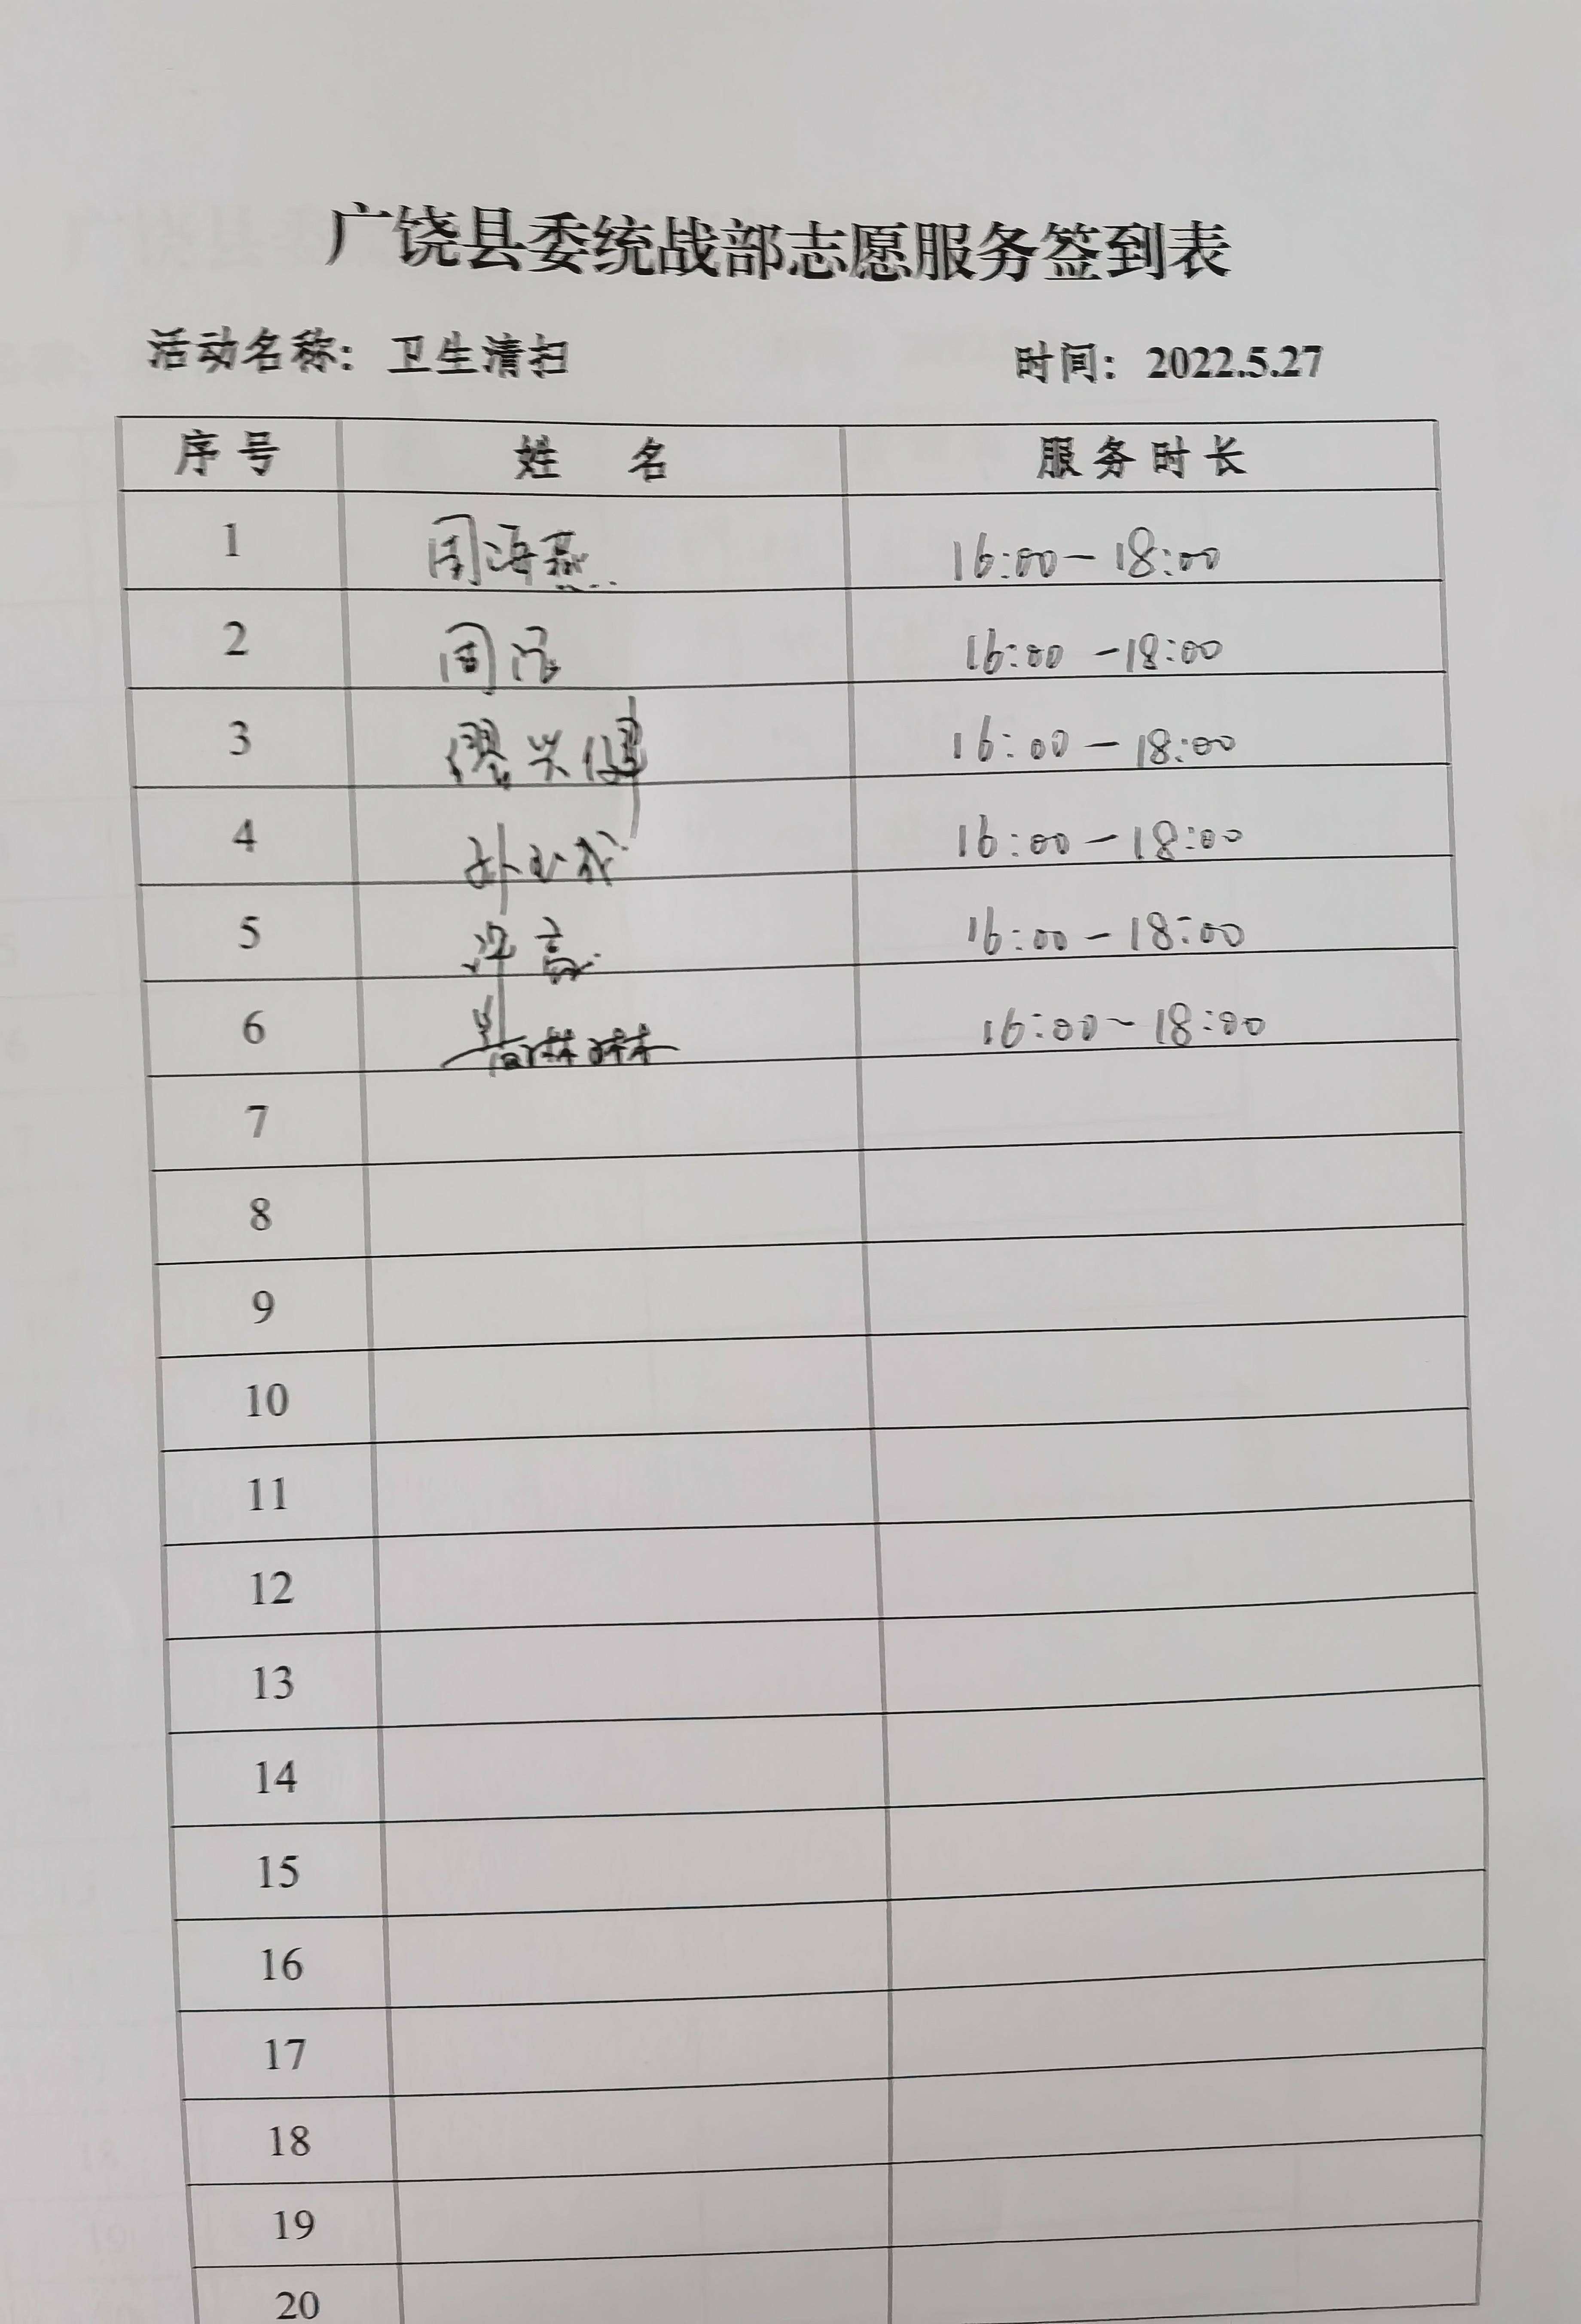 广饶县委统战部志愿服务签到表
活动名称：卫生清扫 时间：2022.5.27
序号 姓 名 服务时长
1 周海燕 16:00-18:00
2 周 16:00-18:00
3 兴健 16:00-18:00
4 孙 16:00-18:00
5 16:00-18:00
6 16:00-18:00
7
8
9
10
11
12
13
14
15
16
17
18
19
20